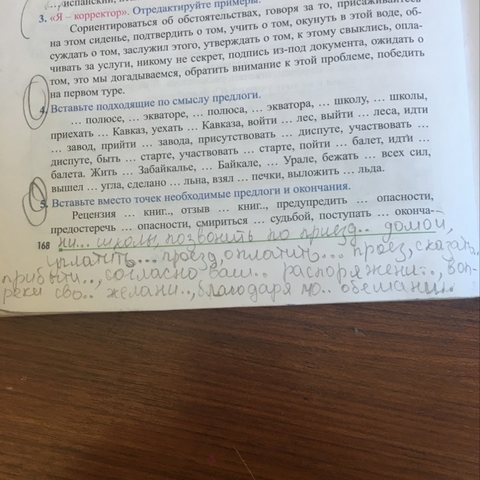 ...,испанский,
3. «Я – корректор». Отредактируйте примеры.
Сориентироваться об обстоятельствах, говоря за то, присаживайтесь
на этом сиденье, подтвердить о том, учить о том, окунуть в этой воде, об-
суждать о том, заслужил этого, утверждать о том, к этому свыклись, опла-
чивать за услуги, никому не секрет, подпись из-под документа, ожидать о
том, это мы догадываемся, обратить внимание к этой проблеме, победить
на первом туре.
4. Вставьте подходящие по смыслу предлоги.
... полюсе, ... экваторе, ... полюса, ... экватора, ... школу, ... школы,
приехать ... Кавказ, уехать ... Кавказа, войти ... лес, выйти ... леса, идти
... завод, прийти ... завода, присутствовать ... диспуте, участвовать ...
диспуте, быть ... старте, участвовать ... старте, пойти ... балет, идти ...
балета. Жить ... Забайкалье, ... Байкале, ... Урале, бежать ... всех сил,
вышел ... угла, сделано ... льна, взял ... печки, выложить ... льда.
5. Вставьте вместо точек необходимые предлоги и окончания.
Рецензия ... книг.., отзыв ... книг.., предупредить ... опасности,
предостеречь ... опасности, смириться ... судьбой, поступать ... оконча-
168 ни.. школы, позвонить по приезд.. домой,
уплатить... проезд, оплатить... проезд, сказать
прибыти.., согласно ваш.. распоряжени.., воп-
реки сво.. желани.., благодаря мо.. обаяни..